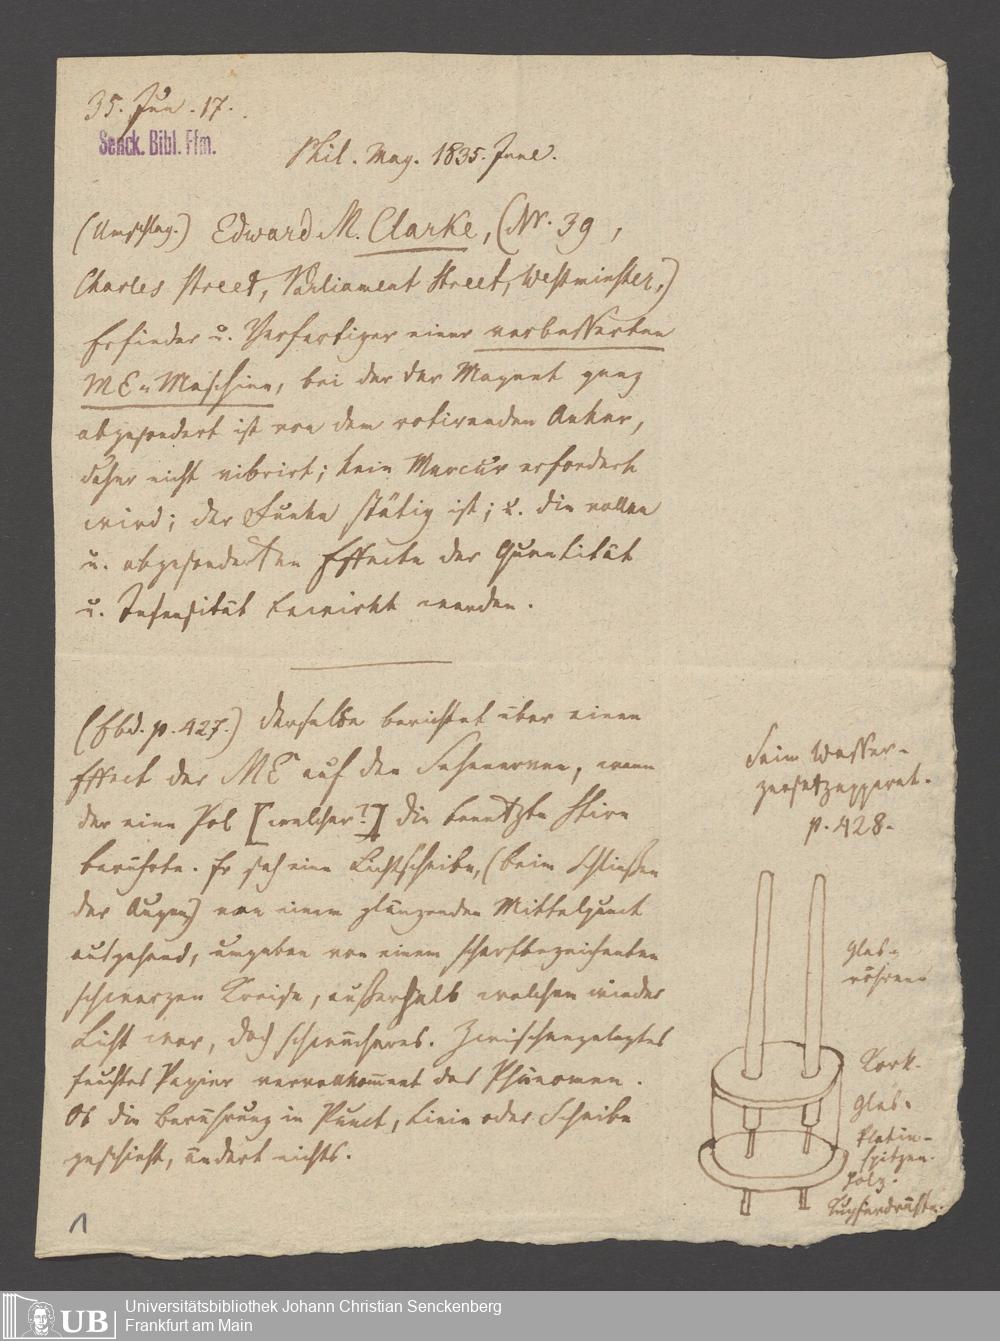 35. Jun. 17.
Senck. Bibl. Ffm.
Phil. Mag. 1835. June.
(Umschlag.) Edward M. Clarke, (Nr. 39,
Charles Street, Parliament Street, Westminster,)
Erfinder u. Verfertiger einer verbesserten
ME=Maschine, bei der der Magnet ganz
abgesondert ist von dem rotirenden Anker,
daher nicht vibrirt; kein Mercur erfordert
wird; der Funke stätig ist; u. die vollen
u. abgesonderten Effecte der Quantität
u. Intensität bewirkt werden.
(Ebd. p. 427.) Derselbe berichtet über einen
Effect der ME auf den Sehnerven, wenn
der eine Pol [welcher?] die benetzte Stirn
berührte. Er sah eine Lichtscheibe, (beim Schließen
der Augen) von einem glänzenden Mittelpunct
ausgehend, umgeben von einem scharfbezeichneten
schwarzen Kreise, außerhalb welchem wieder
Licht war, doch schwächeres. Zwischengelegtes
feuchtes Papier vervollkommnet das Phänomen.
Ob die Berührung in Punct, Linie oder Scheibe
geschieht, ändert nichts.
Sein Wasser-
zersetzapparat.
p. 428.
Glas-
röhren
Kork.
Glas.
Platin-
spitzen.
Holz.
Kupferdräht.
1
UB
Universitätsbibliothek Johann Christian Senckenberg
Frankfurt am Main